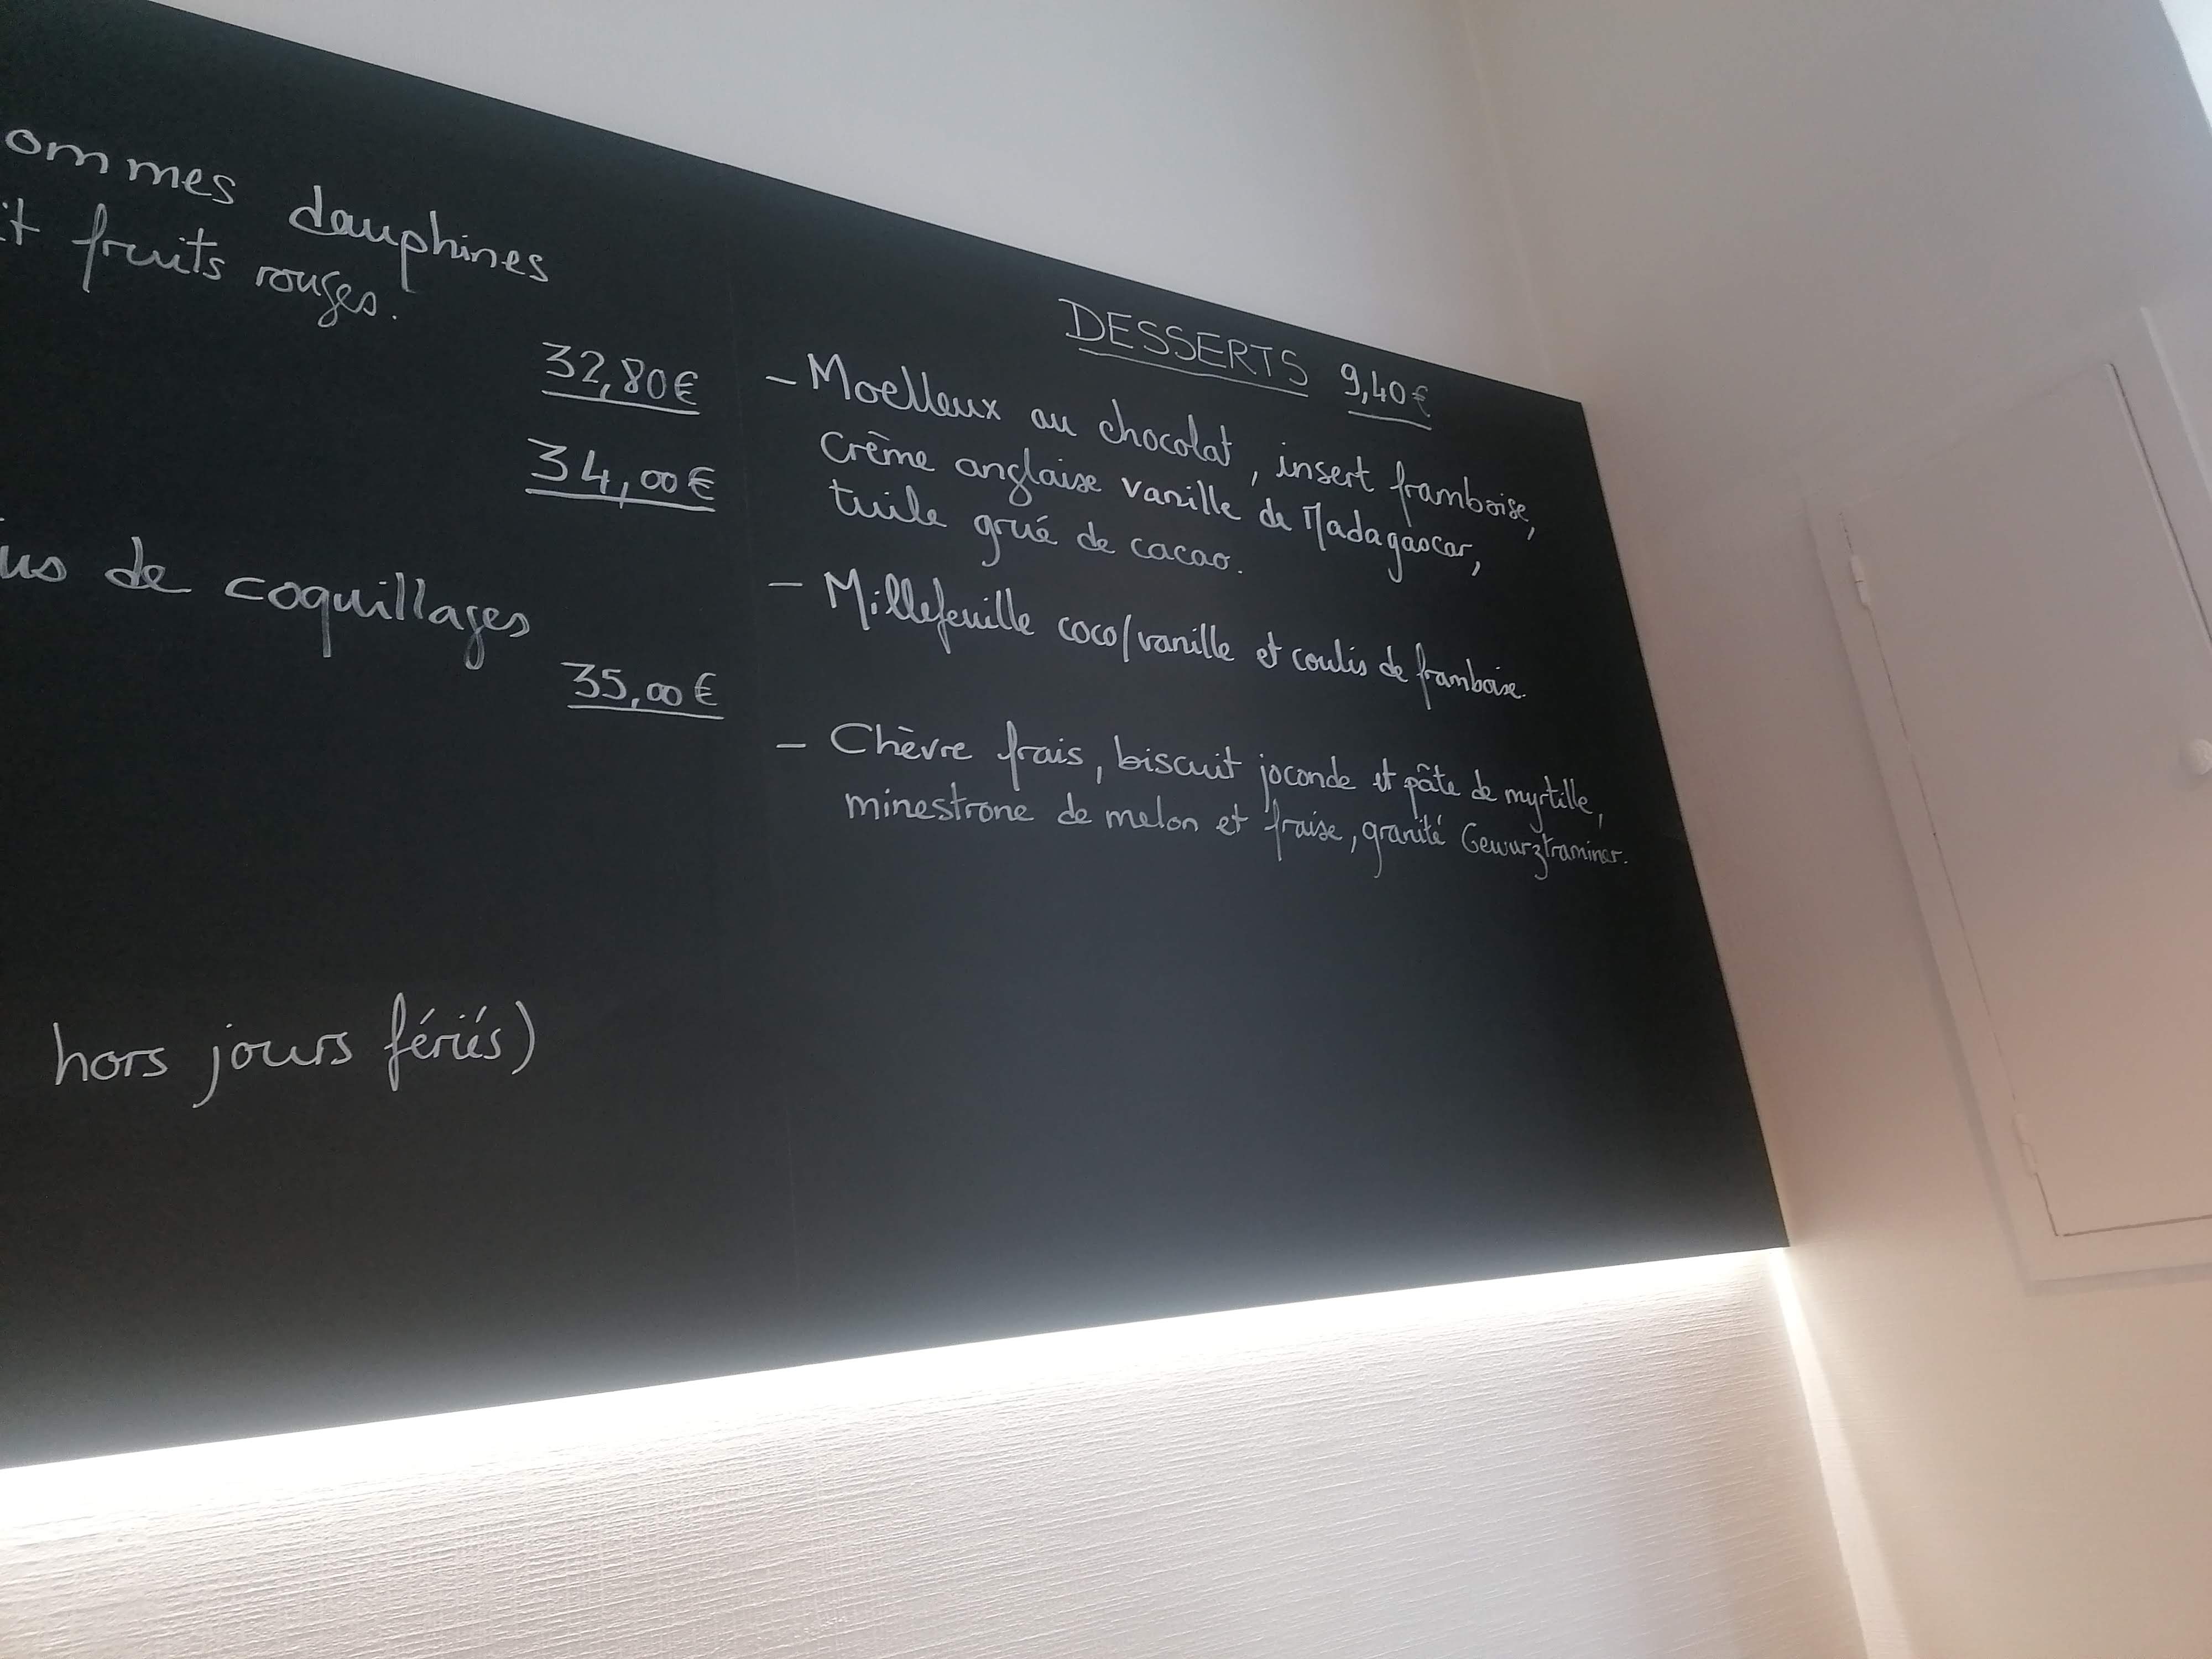 ommes dauphines
it fruits rouges.
32,80€
34,00€
us de coquillages
35,00€
hors jours fériés)
DESSERTS 9,40€
- Moelleux au chocolat, insert framboise,
Crème anglaise vanille de Madagascar,
tuile grué de cacao.
- Millefeuille coco/vanille et coulis de framboise.
- Chèvre frais, biscuit joconde et pâte de myrtille,
minestrone de melon et fraise, granité Gewurztraminer.